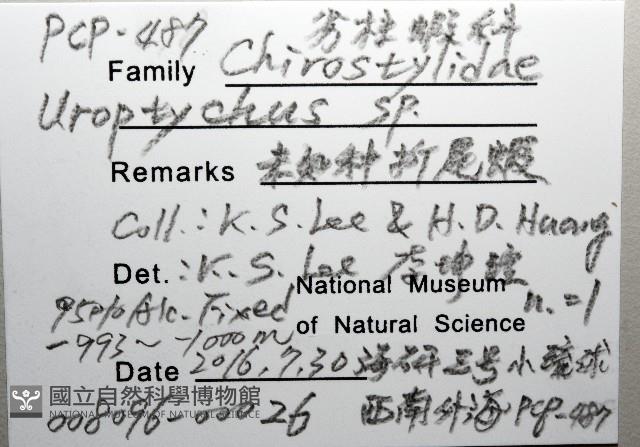 PCP-487 劳柱蝦科
Family Chirostylidae
Uroptychus sp.
Remarks 未知种折尾蝦
Coll.: K. S. Lee & H. D. Huang
Det.: K. S. Lee 李坤瑄
National Museum of Natural Science
95% Alc. Fixed n.=1
-993~-1000m
Date 2016.7.30 海研三号小琉球
西南外海 PCP-487
國立自然科學博物館
NATIONAL MUSEUM OF NATURAL SCIENCE